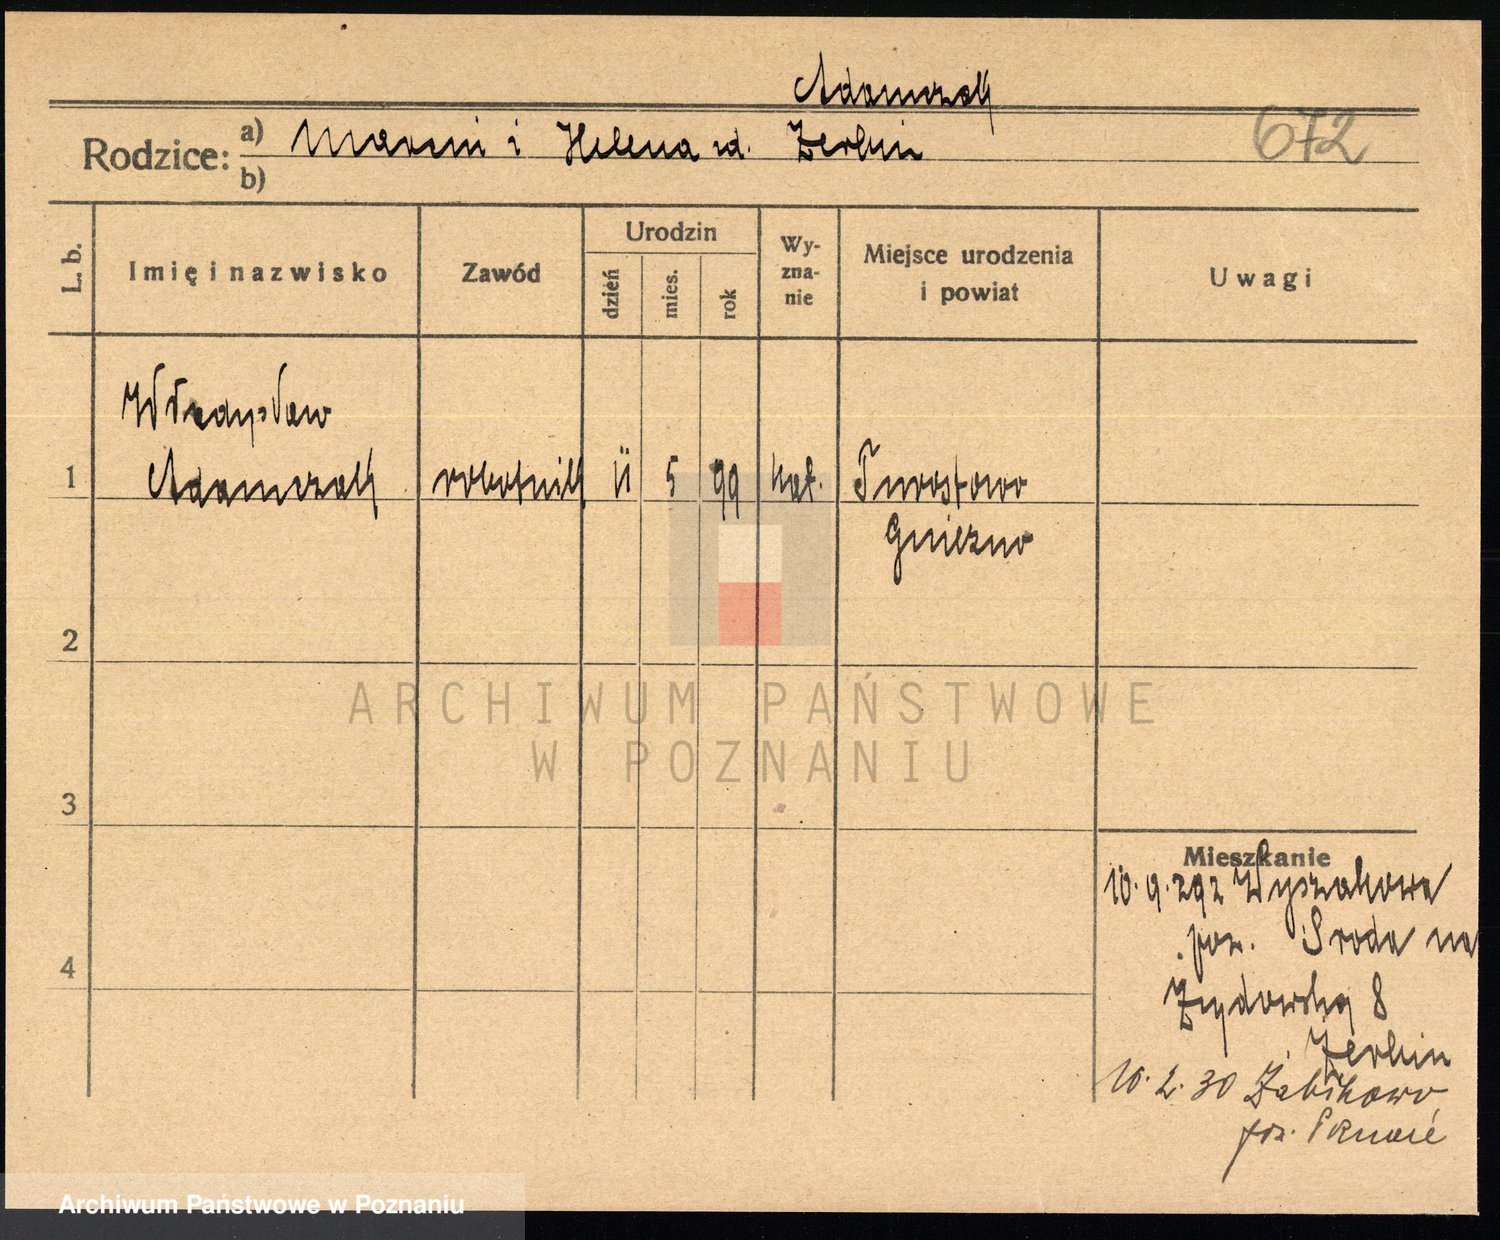 Adamczak
Rodzice: a) Marcin i Helena zd. Zerbin
b)
672
L. b.
Imię i nazwisko
Zawód
Urodzin
dzień
mies.
rok
Wy-
zna-
nie
Miejsce urodzenia
i powiat
Uwagi
Władysław
1 Adamczak robotnik 11 5 99 kat. Turostowo
Gniezno
2
3
4
Mieszkanie
10.9.292 Wyszakowo
poz. Środa na
Żydowską 8
Zerbin
10.2.30 Żabikowo
poz. Poznań
ARCHIWUM PAŃSTWOWE
W POZNANIU
Archiwum Państwowe w Poznaniu